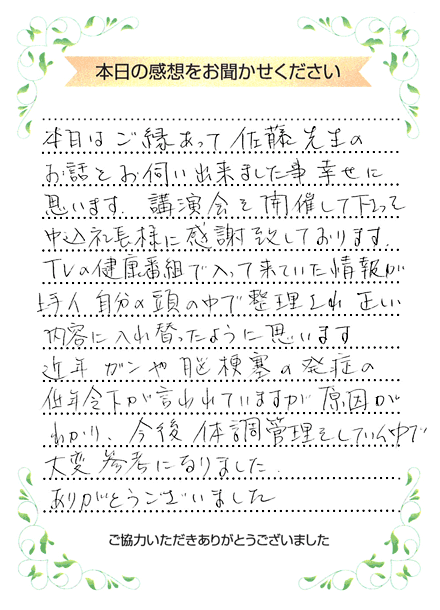 本日の感想をお聞かせください
本日はご縁あって 佐藤先生の
お話をお伺い出来ました事 幸せに
思います. 講演会を開催して下さって
中込社長様に感謝致しております.
TVの健康番組で入って来ていた情報が
上手く 自分の頭の中で整理され 正しい
内容に入れ替ったように思います
近年 ガンや脳梗塞の発症の
低年令下が言われていますが 原因が
わかり、今後 体調管理をしていく中で
大変参考になりました.
ありがとうございました
ご協力いただきありがとうございました